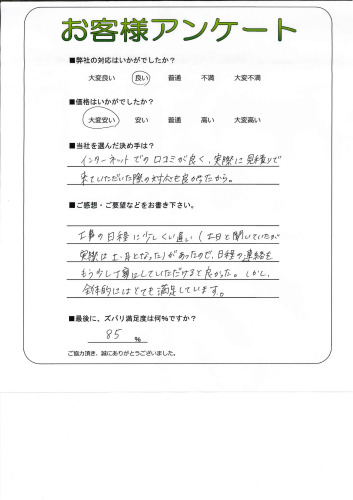 お客様アンケート
■弊社の対応はいかがでしたか？
大変良い 良い 普通 不満 大変不満
■価格はいかがでしたか？
大変安い 安い 普通 高い 大変高い
■当社を選んだ決め手は？
インターネットでの口コミが良く、実際に見積りで
来ていただいた際の対応も良かったから。
■ご感想・ご要望などをお書き下さい。
工事の日程に少しくい違い(土日と聞いていたが
実際は土・月となった)があったので、日程の連絡を
もう少し丁寧にしていただけると良かった。しかし、
全体的にはとても満足しています。
■最後に、ズバリ満足度は何%ですか？
85 %
ご協力頂き、誠にありがとうございました。